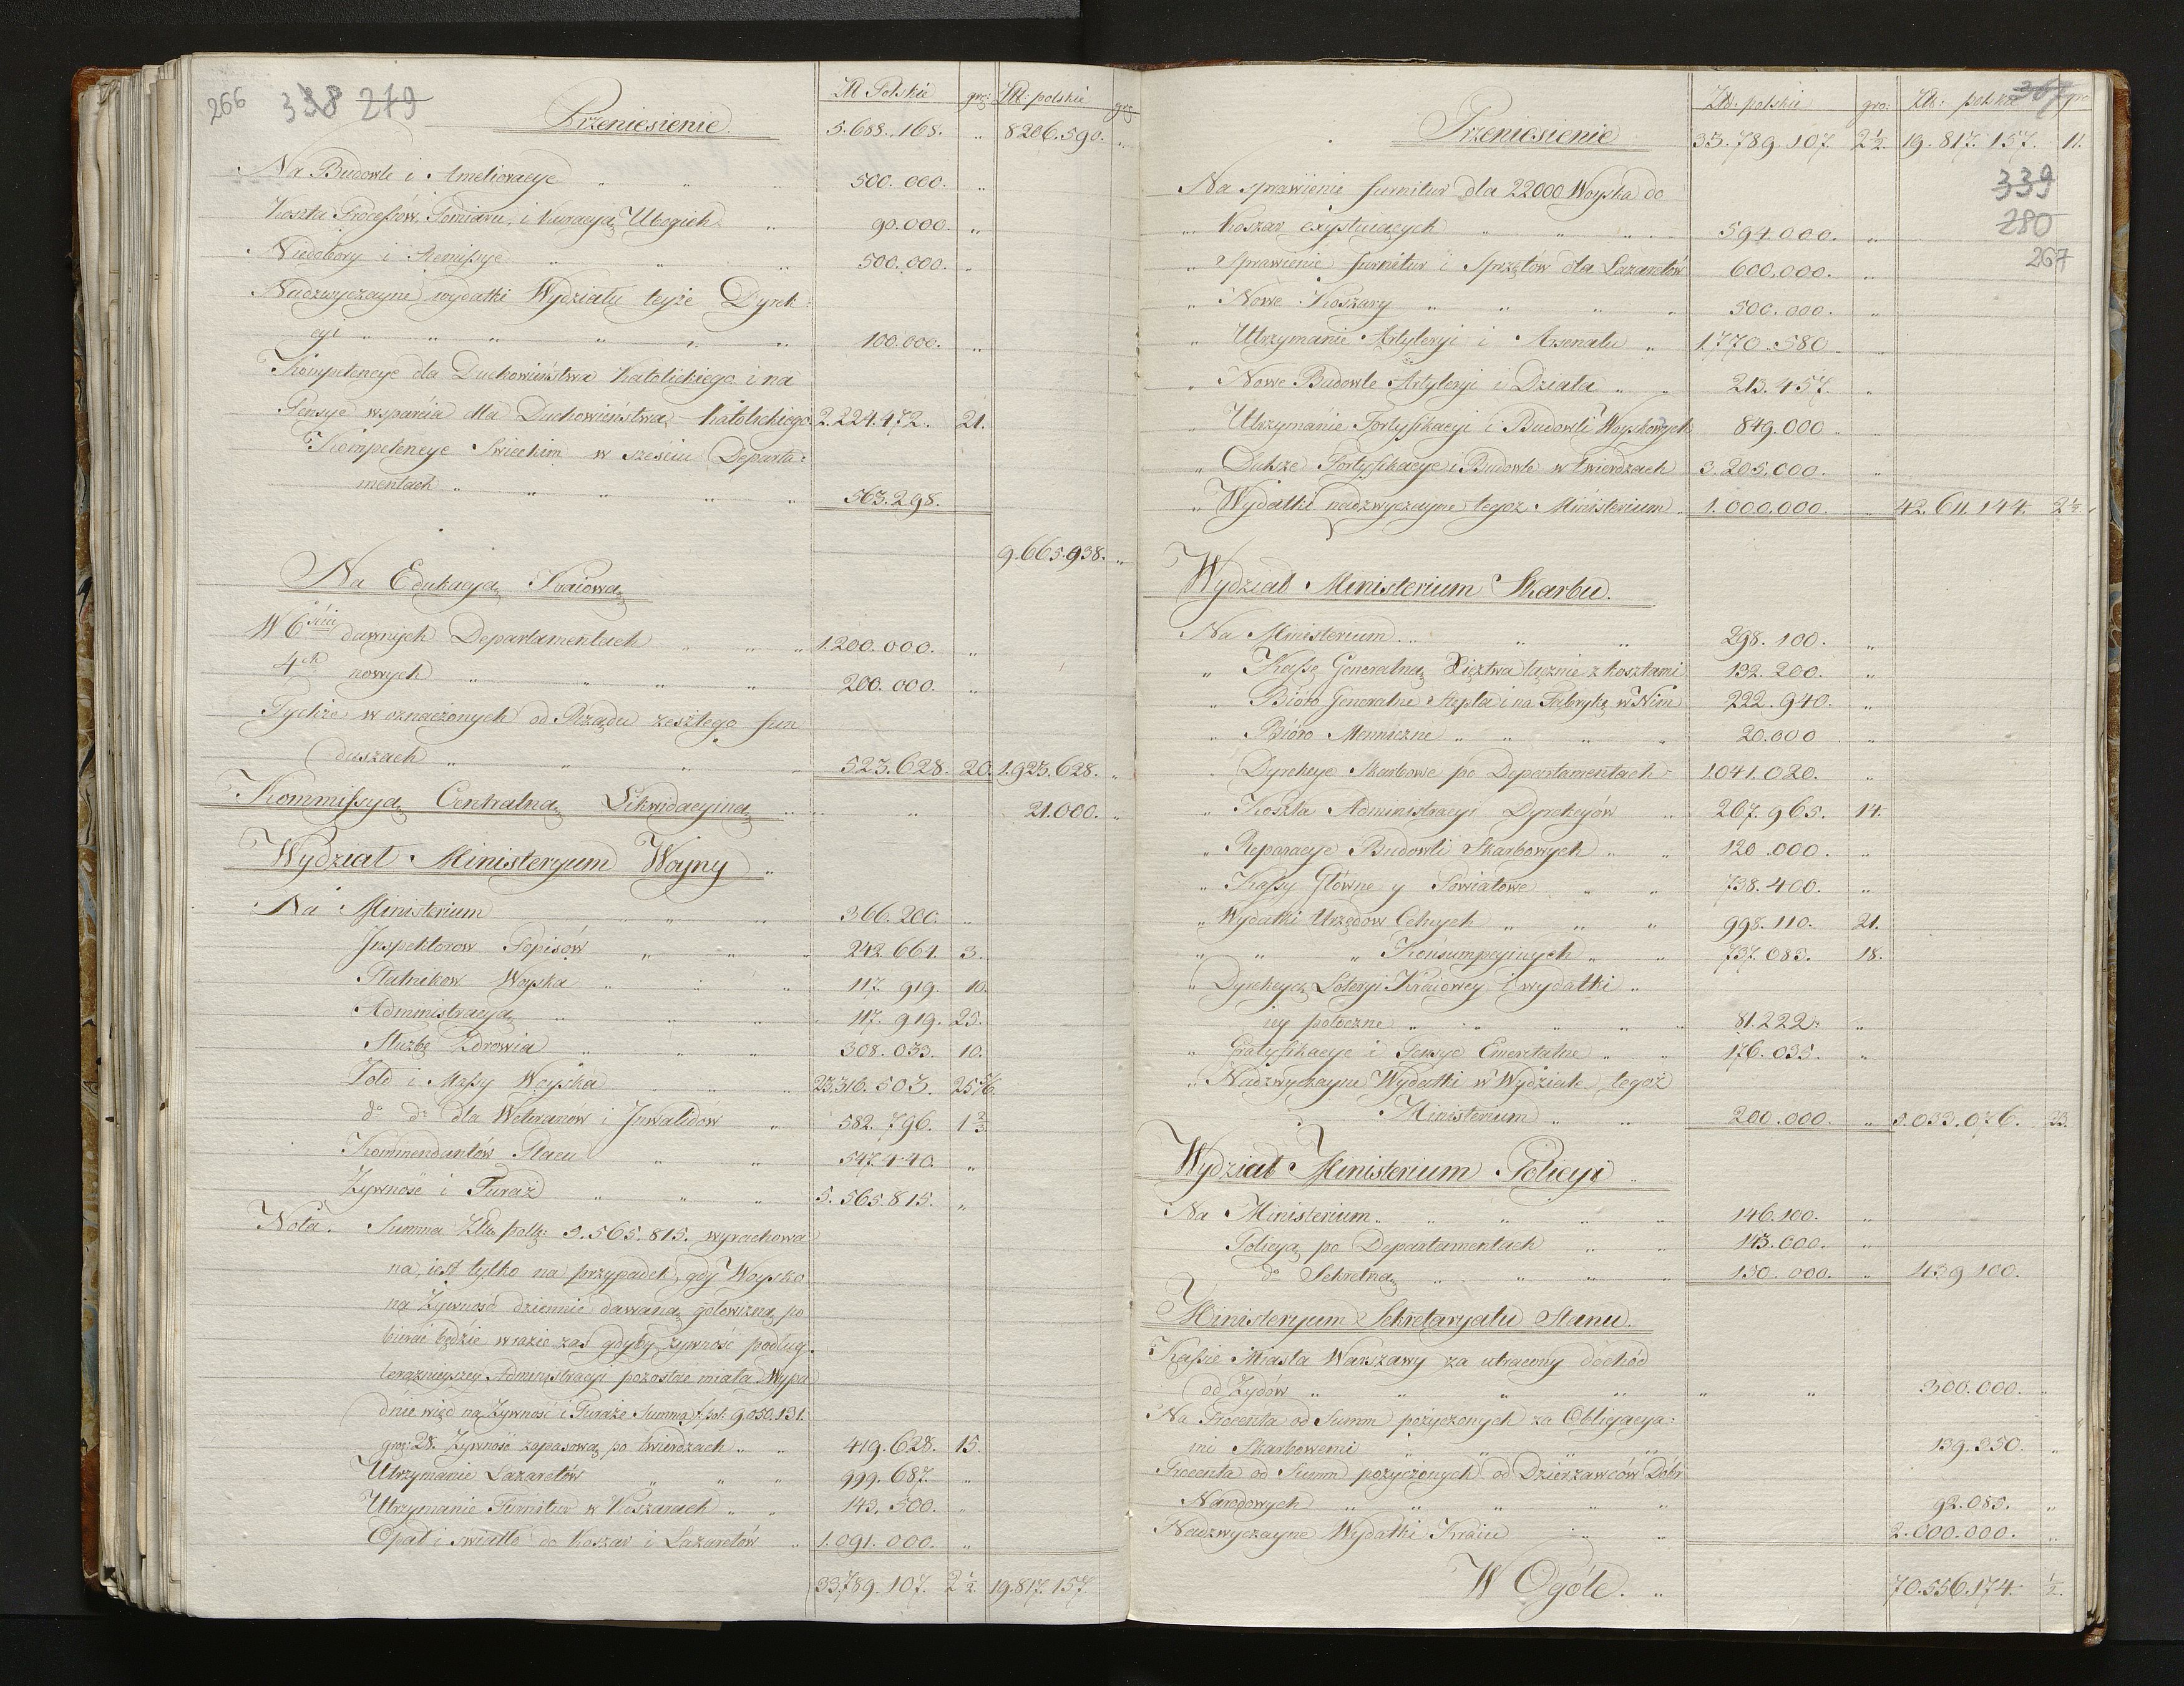 266 338 279
Zł Polskie gro: Złł: polskie gro
Przeniesienie 5.688.168. „ 8206.590. „
Na Budowle i Amelioracye „ „ „ 500.000. „
Koszta Processów, Pomiaru, i Kuracyą Ubogich „ 90.000. „
Niedobory i Remissye „ „ „ 500.000. „
Nadzwyczayne wydatki Wydziału teyże Dyrek:
cyi „ „ „ „ „ „ 100.000. „
Kompetencye dla Duchowieństwa Katolickiego i na
Pensye wsparcia dla Duchowieństwa Katolickiego 2.224.472. 21.
Kompetencye Swieckim w sześciu Departa:
mentach „ „ „ „ „ 563.298.
9.665.938. „
Na Edukacyą Kraiową
W 6ściu dawnych Departamentach „ „ „ 1.200.000. „
4ch nowych „ „ „ „ 200.000. „
Tychże w oznaczonych od Rządu zeszłego fun
duszach „ „ „ „ 523.628. 20. 1.923.628. „
Kommissyą Centralną Likwidacyiną „ „ 21.000. „
Wydział Ministeryum Woyny „
Na Ministerium „ „ 366.200. „
Inspektorow Popisów „ „ „ 242.664. 3.
Płatnikow Woyska „ „ „ 117.919. 10.
Administracyą „ „ „ 117.919. 23.
Służbę Zdrowia „ „ „ 308.033. 10.
Żołd i Massy Woyska „ „ „ 23.316.503. 25 5/6.
do do dla Weteranow i Inwalidów „ 582.796. 1 2/3
Kommendantów Placu „ „ 547.440. „
Żywność i Furaż „ „ „ 5.565.815. „
Nota. Summa Złł. polk: 5.565.815. wyrachowa
na, iest tylko na przypadek, gdy Woysko
na Żywność dziennie dawaną gotowizną po
bierać będzie w razie zaś gdyby żywność podług
teraznieyszey Administracyi pozostać miała Wypa
dnie więc na Żywność i Furaże Summa f. pol: 9.050.131.
gro: 28. Żywność zapasową po twierdzach „ „ 419.628. 15.
Utrzymanie Lazaretów „ „ „ 999.687. „
Utrzymanie Furnitur w Koszarach „ „ 143.500. „
Opał i swiatło do Koszar i Lazaretów „ 1.091.000. „
33.789.107. 2 1/2. 19.817.157.
367
Złł: polskie gro: Złł: polskie gro
Przeniesienie 33.789.107. 2 1/2. 19.817.157. 11.
339
280
267
Na sprawienie furnitur dla 22000 Woyska do
„ Koszar exystuiących „ „ „ 594.000. „
„ Sprawienie furnitur i Sprzętów dla Lazaretów 600.000. „
„ Nowe Koszary „ „ „ „ 500.000. „
„ Utrzymanie Artyleryi i Arsenału „ 1.770.580 „
„ Nowe Budowle Artyleryi i Działa „ „ 213.457. „
„ Utrzymanie Fortyfikacyi i Budowli Woyskowych 849.000 „
„ Dalsze Fortyfikacye i Budowle w twierdzach 3.205.000. „
„ Wydatki nadzwyczayne tegoz Ministerium „ 1.000.000. „ 42.611.144. 2 1/2
Wydział Ministerium Skarbu.
Na Ministerium „ „ „ 298.100. „
„ Kassę Generalną Xięztwa łącznie z kosztami 132.200. „
„ Bióro Generalne Stępla i na Fabrykę w Nim 222.940. „
„ Bióro Mennicze „ „ „ „ 20.000 „
Dyrekcye Skarbowe po Departamentach 1.041.020. „
„ Koszta Administracyi Dyrekcyów „ 267.965. 14.
„ Reparacye Budowli Skarbowych „ „ 120.000. „
„ Kassy Główne y Powiatowe „ „ 738.400. „
„ Wydatki Urzędow Celnych „ „ „ 998.110. 21.
„ „ „ Konsumpcyinych „ „ 737.083. 18.
„ Dyrekcyą Loteryi Kraiowey i wydatki „
iey potoczne „ „ „ „ „ 81.222. „
„ Gratyfikacye i Pensye Emerytalne „ „ 176.035. „
„ Nadzwyczayne Wydatki w Wydziale tegoż
Ministerium „ „ 200.000. „ 5.033.076. 23.
Wydział Ministerium Policyi „
Na Ministerium „ „ „ „ 146.100. „
Policyą po Departamentach „ „ 143.000. „
do Sekretną „ „ „ „ 150.000. „ 439.100.
Ministeryum Sekretaryatu Stanu.
Kassie Miasta Warszawy za utracony dochód
od Żydów „ „ „ „ „ „ 300.000. „
Na Procenta od Summ pożyczonych za Obligacya:
mi Skarbowemi „ „ „ „ 139.350. „
Procenta od Summ pożyczonych od Dzierzawców Dóbr
Narodowych „ „ „ „ „ 92.085. „
Nadzwyczayne Wydatki Kraiu „ „ 2.000.000. „
W Ogóle. „ 70.556.174. 1/2.